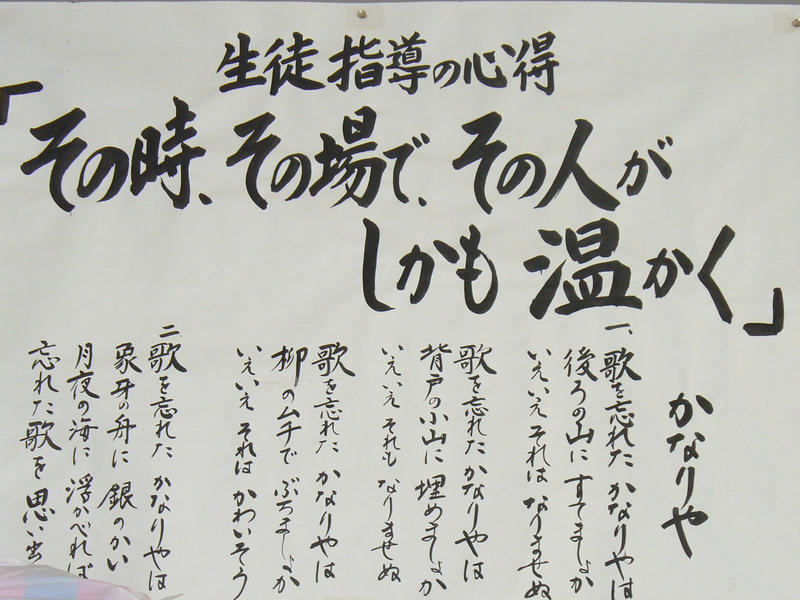 生徒指導の心得
「その時、その場で、その人が
しかも温かく」
かなりや
一、歌を忘れた かなりやは
後ろの山に すてましょか
いえいえ それは なりませぬ
歌を忘れた かなりやは
背戸の小山に 埋めましょか
いえいえ それも なりませぬ
歌を忘れた かなりやは
柳のムチで ぶちましょか
いえいえ それは かわいそう
二 歌を忘れた かなりやは
象牙の舟に 銀のかい
月夜の海に 浮かべれば
忘れた歌を 思い出